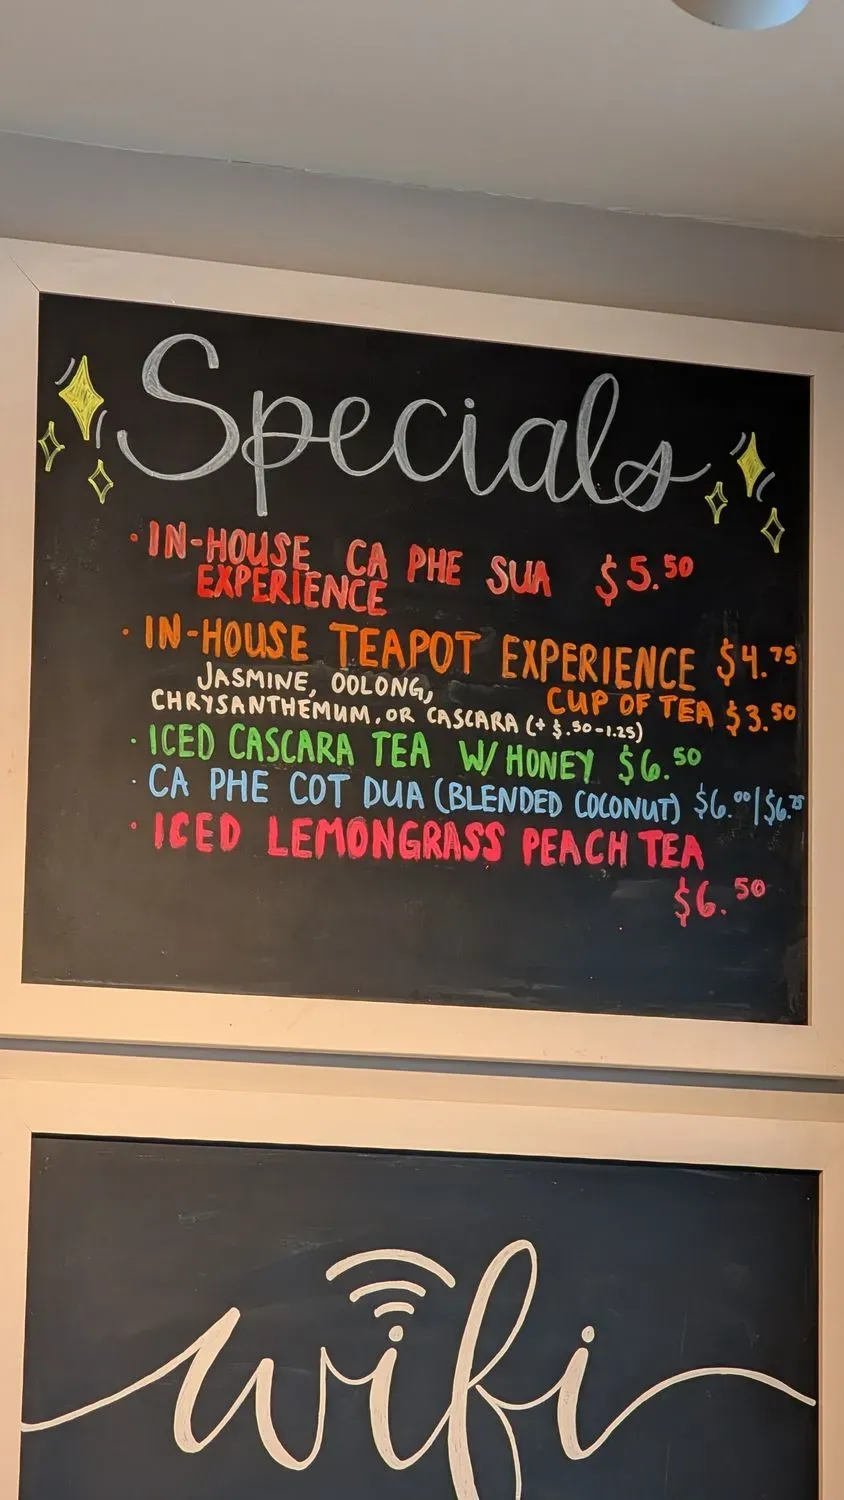 Specials
· IN-HOUSE CA PHE SUA $5.50
EXPERIENCE
· IN-HOUSE TEAPOT EXPERIENCE $4.75
JASMINE, OOLONG, CUP OF TEA $3.50
CHRYSANTHEMUM, OR CASCARA (+ $.50-1.25)
· ICED CASCARA TEA W/ HONEY $6.50
· CA PHE COT DUA (BLENDED COCONUT) $6.00|$6.75
· ICED LEMONGRASS PEACH TEA
$6.50
wifi